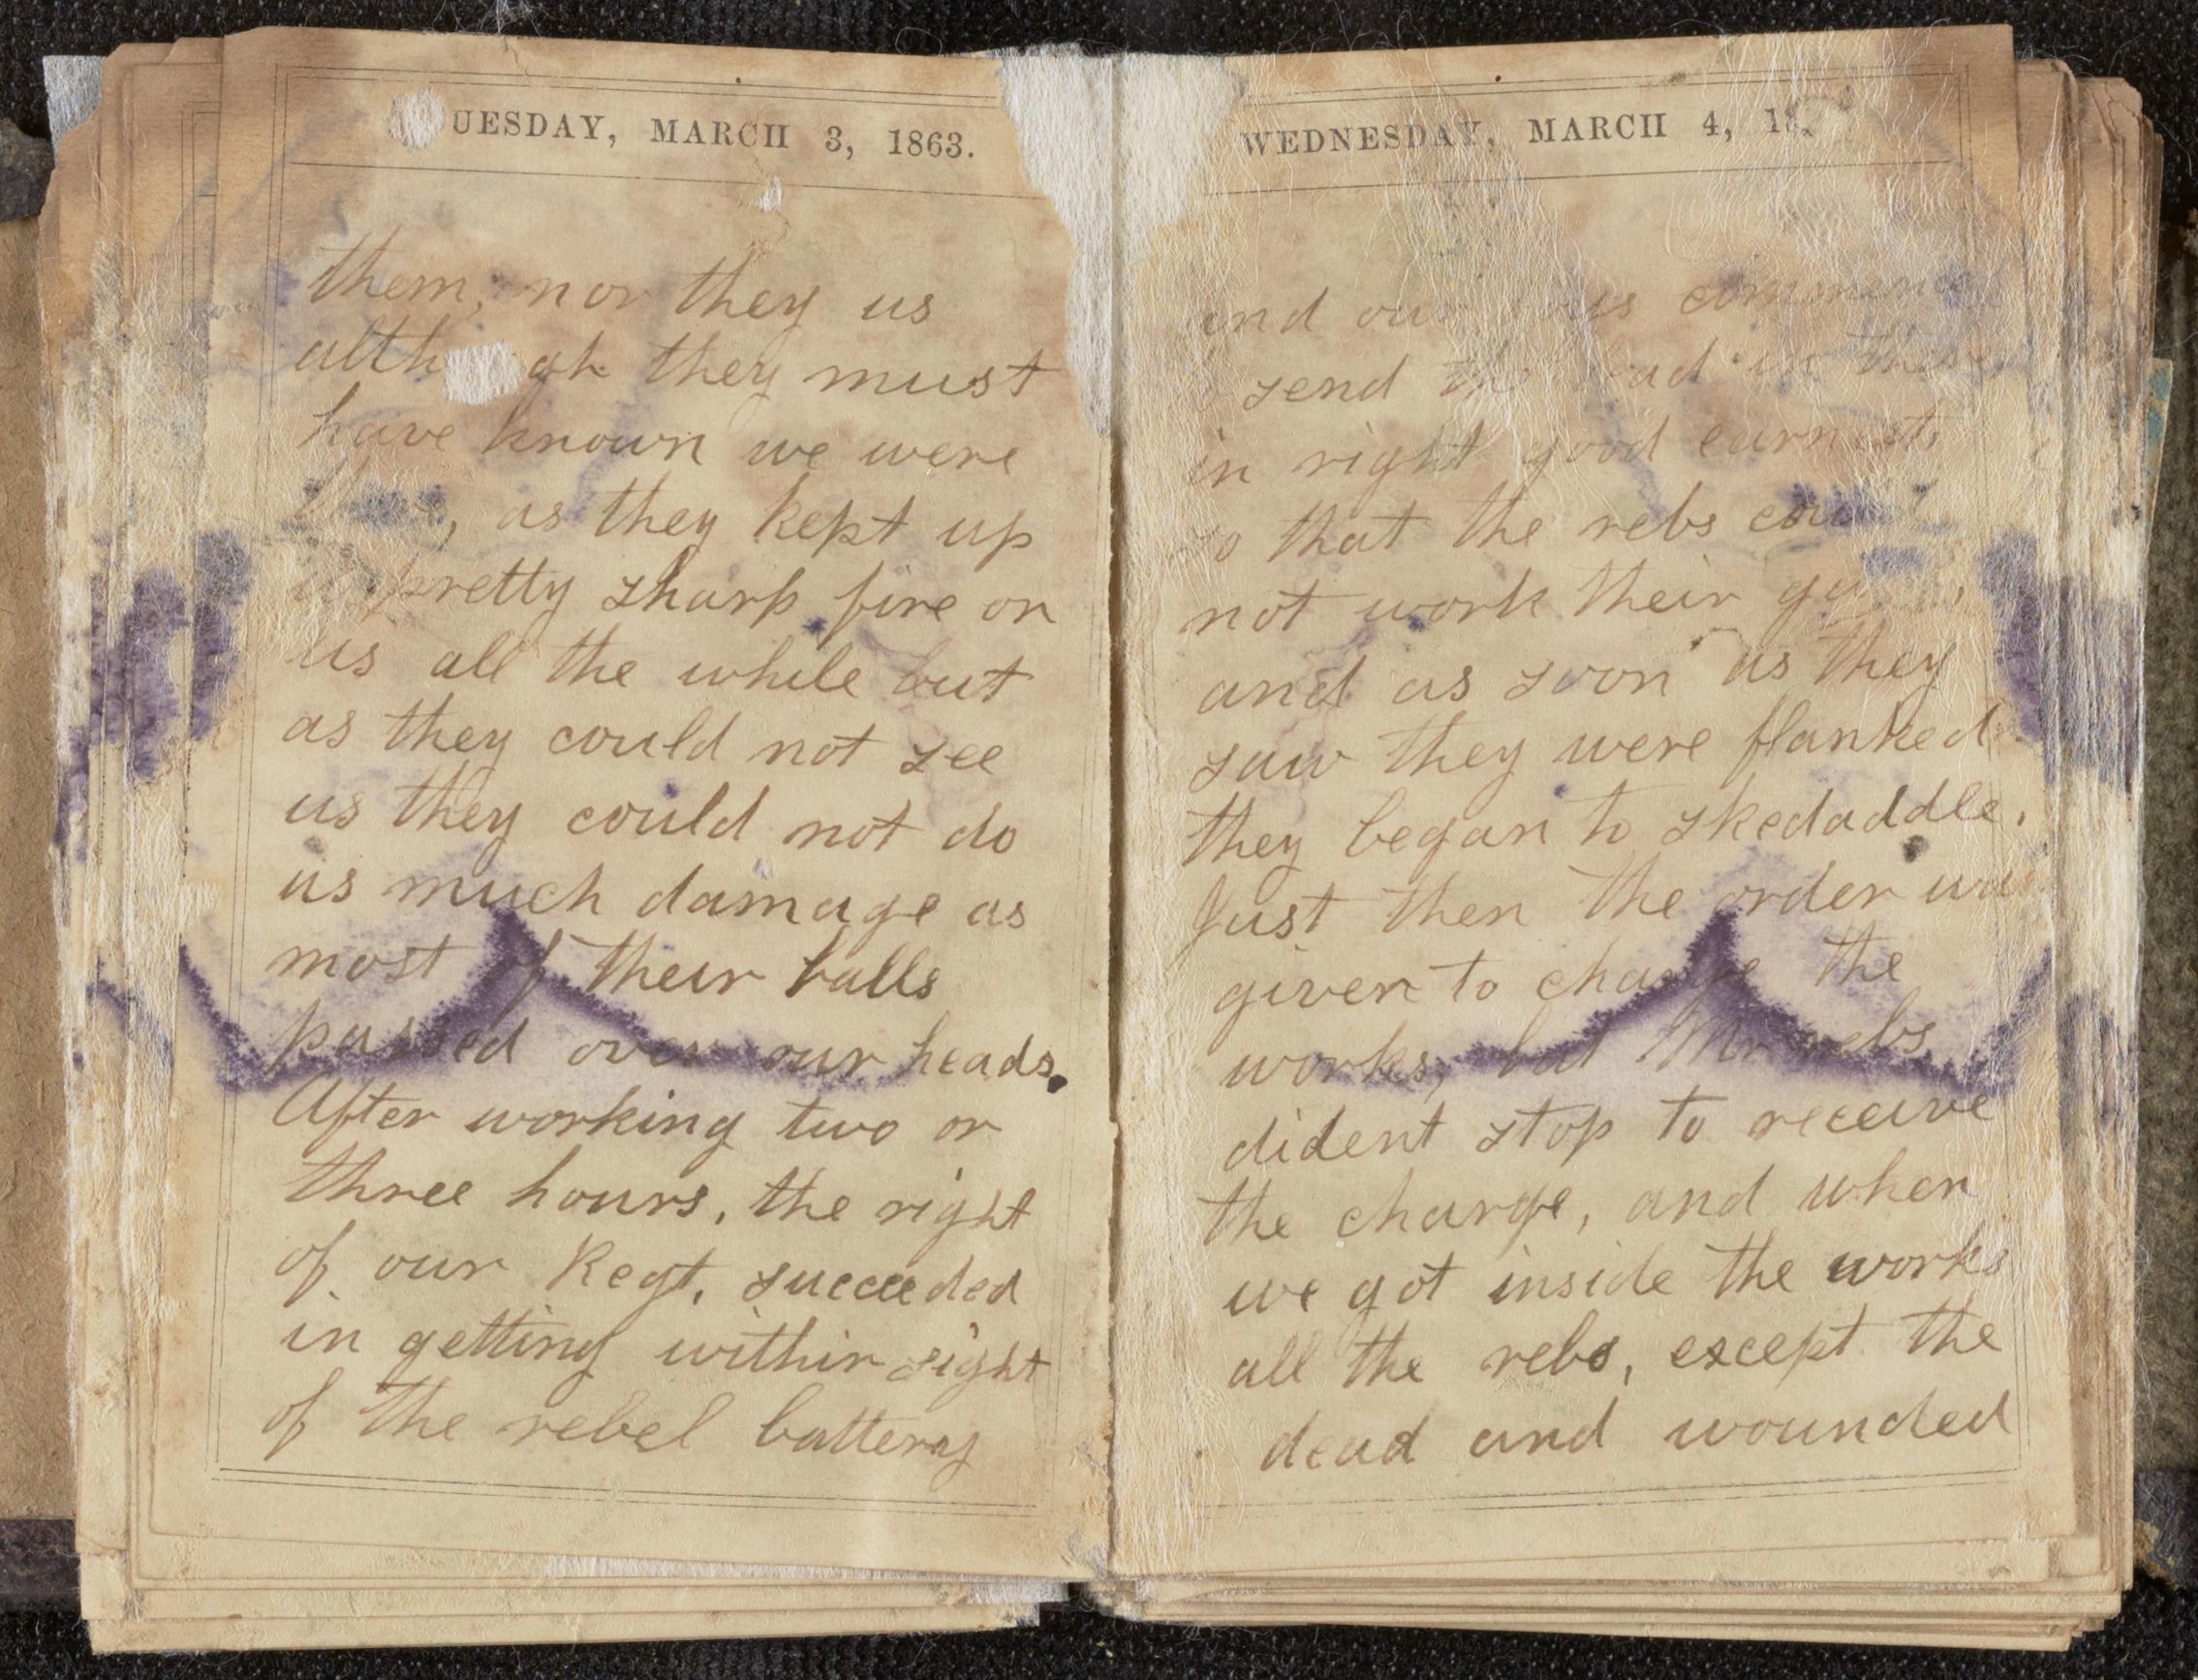 UESDAY, MARCH 3, 1863.
them, nor they us
alth gh they must
have known we were
, as they kept up
a pretty sharp fire on
us all the while but
as they could not see
us they could not do
us much damage as
most of their balls
passed over our heads.
After working two or
three hours, the right
of our Regt, succeeded
in getting within sight
of the rebel battery
WEDNESDAY, MARCH 4, 18
and our
send the lead in
in right good earnest
so that the rebs
not work their
and as soon as they
saw they were flanked
they began to skedaddle.
Just then the order was
given to charge the
works, but Mr rebs
dident stop to receive
the charge, and when
we got inside the works
all the rebs, except the
dead and wounded